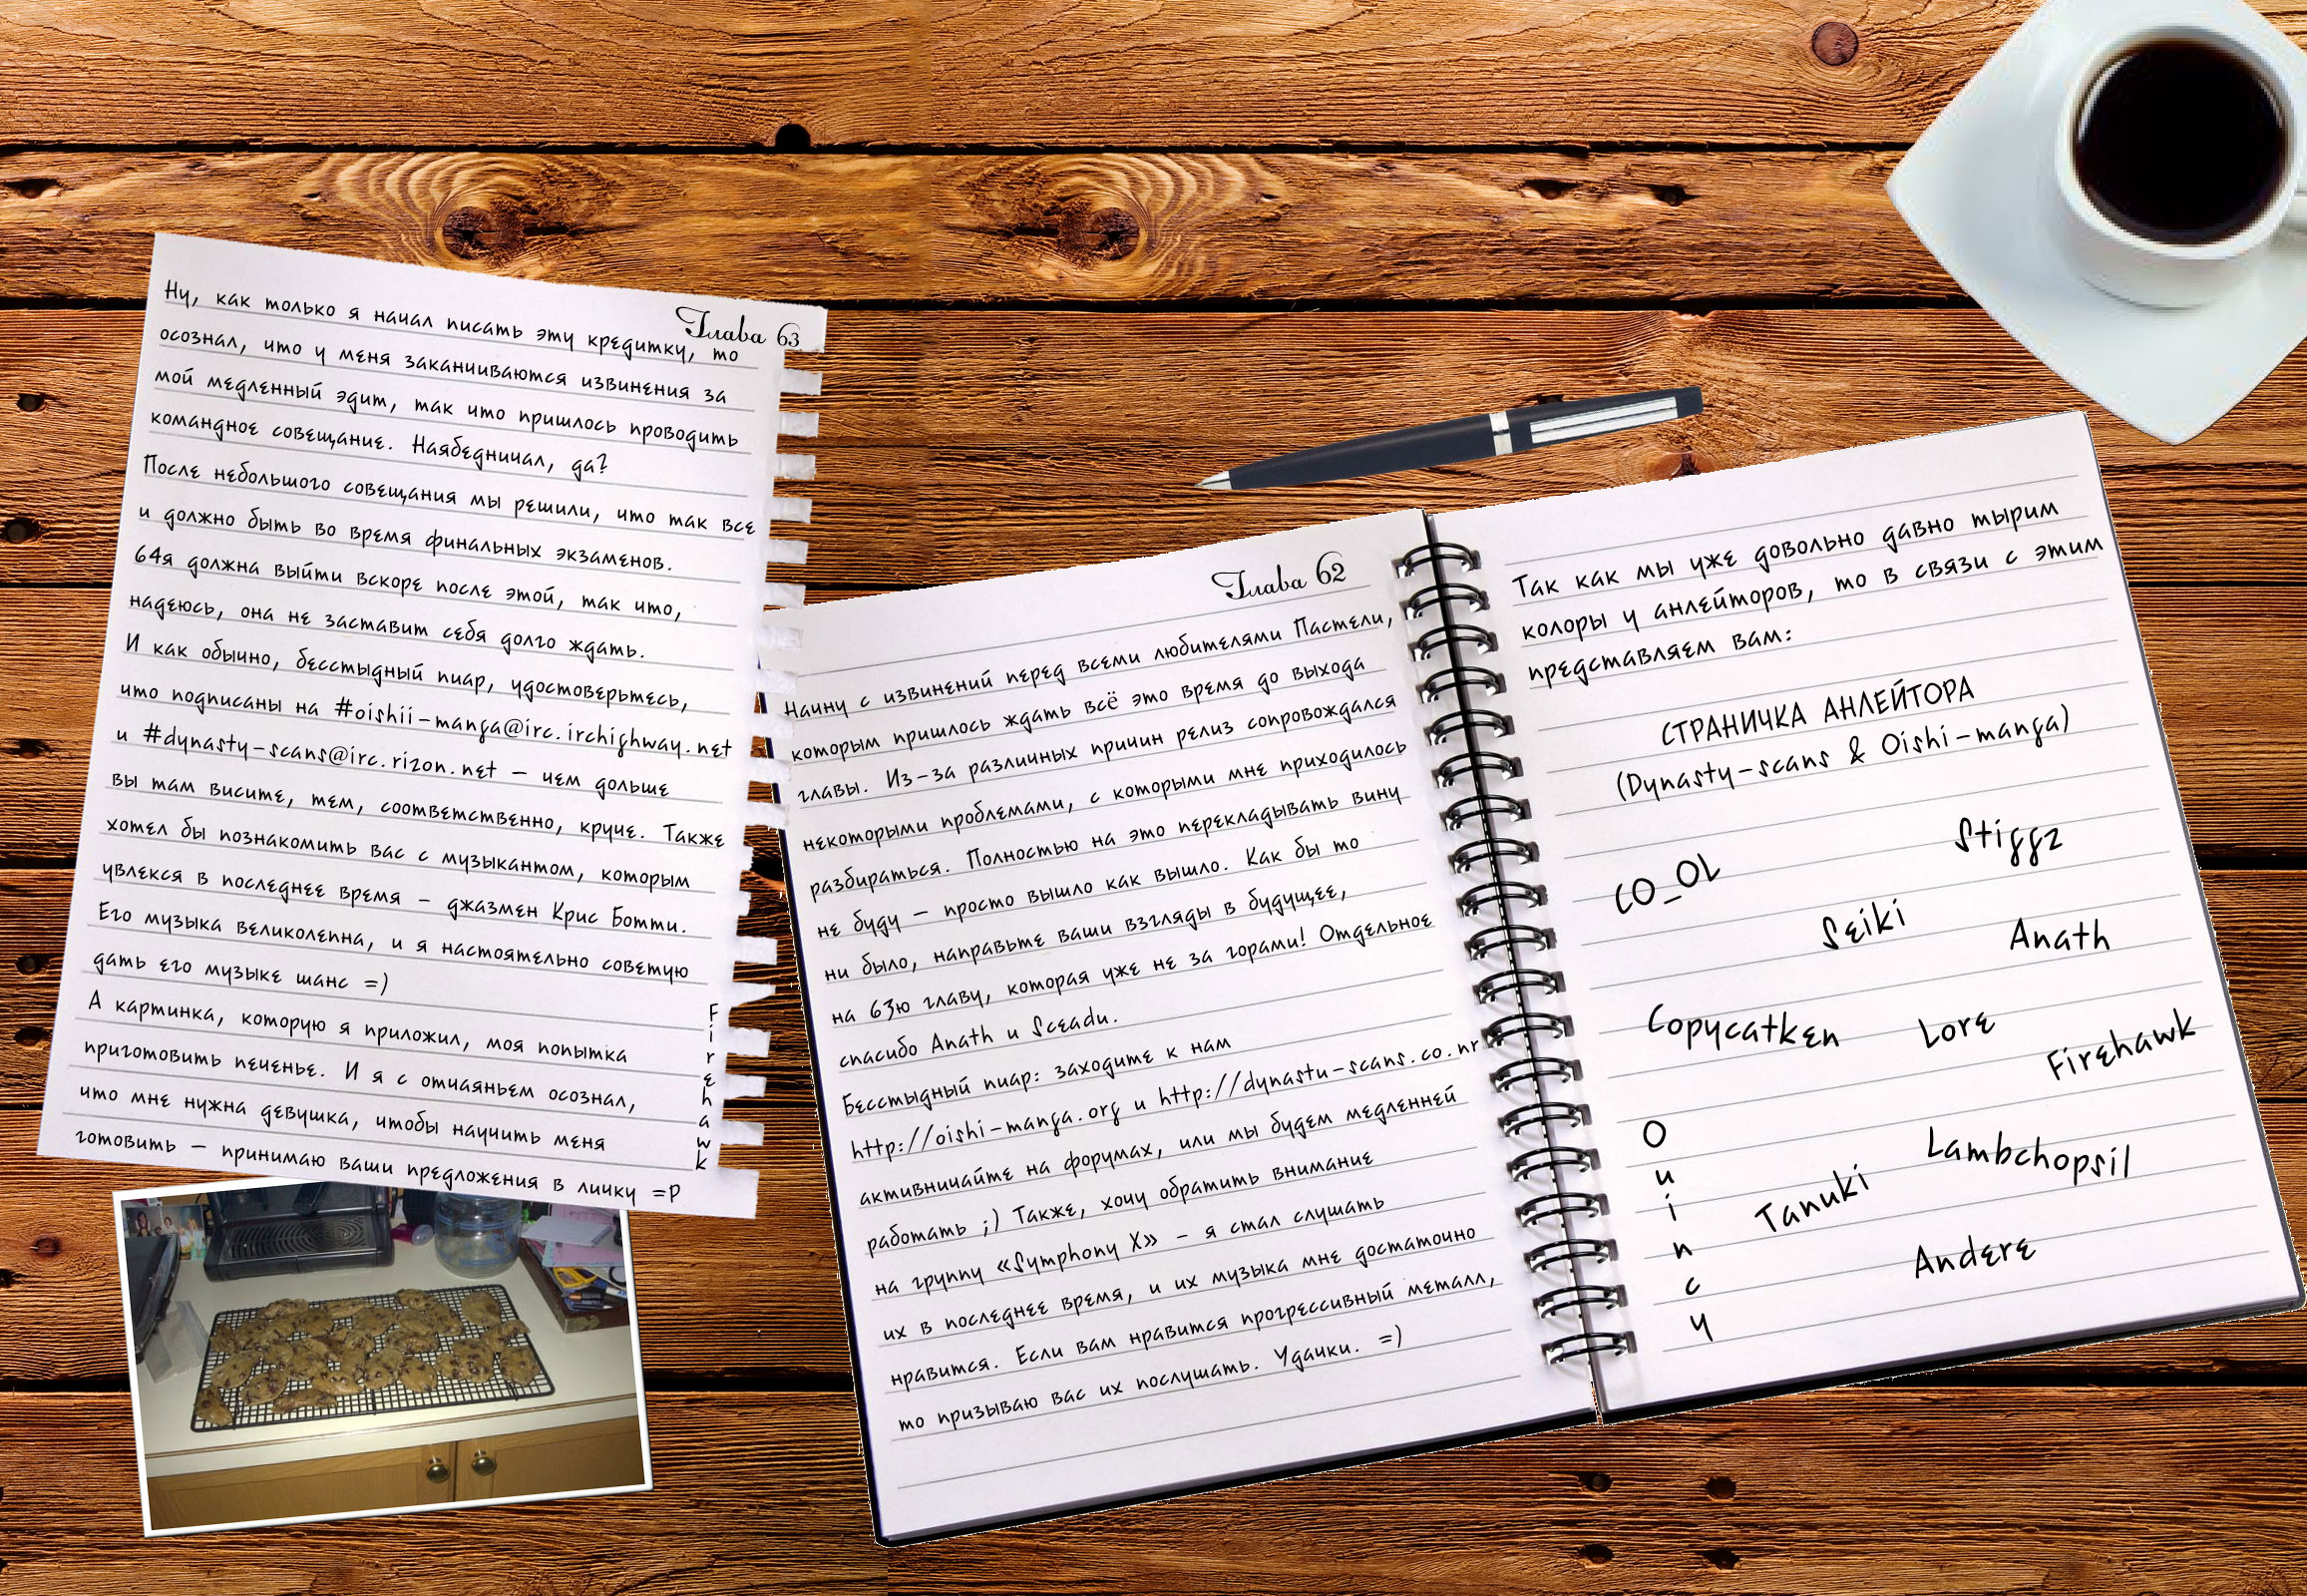 Глава 63
Ну, как только я начал писать эту кредитку, то
осознал, что у меня заканчиваются извинения за
мой медленный эдит, так что пришлось проводить
командное совещание. Наябедничал, да?
После небольшого совещания мы решили, что так все
и должно быть во время финальных экзаменов.
64я должна выйти вскоре после этой, так что,
надеюсь, она не заставит себя долго ждать.
И как обычно, бесстыдный пиар, удостоверьтесь,
что подписаны на #oishii-manga@irc.irchighway.net
и #dynasty-scans@irc.rizon.net – чем дольше
вы там висите, тем, соответственно, круче. Также
хотел бы познакомить вас с музыкантом, которым
увлекся в последнее время – джазмен Крис Ботти.
Его музыка великолепна, и я настоятельно советую
дать его музыке шанс =)
А картинка, которую я приложил, моя попытка
приготовить печенье. И я с отчаяньем осознал,
что мне нужна девушка, чтобы научить меня
готовить – принимаю ваши предложения в личку =P
Firehawk
Глава 62
Начну с извинений перед всеми любителями Пастели,
которым пришлось ждать всё это время до выхода
главы. Из-за различных причин релиз сопровождался
некоторыми проблемами, с которыми мне приходилось
разбираться. Полностью на это перекладывать вину
не буду – просто вышло как вышло. Как бы то
ни было, направьте ваши взгляды в будущее,
на 63ю главу, которая уже не за горами! Отдельное
спасибо Anath и Sceadu.
Бесстыдный пиар: заходите к нам
http://oishi-manga.org и http://dynastu-scans.co.nr
активничайте на форумах, или мы будем медленней
работать ;) Также, хочу обратить внимание
на группу «Symphony X» – я стал слушать
их в последнее время, и их музыка мне достаточно
нравится. Если вам нравится прогрессивный металл,
то призываю вас их послушать. Удачки. =)
Так как мы уже довольно давно тырим
колоры у анлейторов, то в связи с этим
представляем вам:
СТРАНИЧКА АНЛЕЙТОРА
(Dynasty-scans & Oishi-manga)
CO_OL
Stiggz
Seiki
Anath
Copycatken
Lore
Firehawk
Ouincy
Tanuki
Lambchopsil
Andere